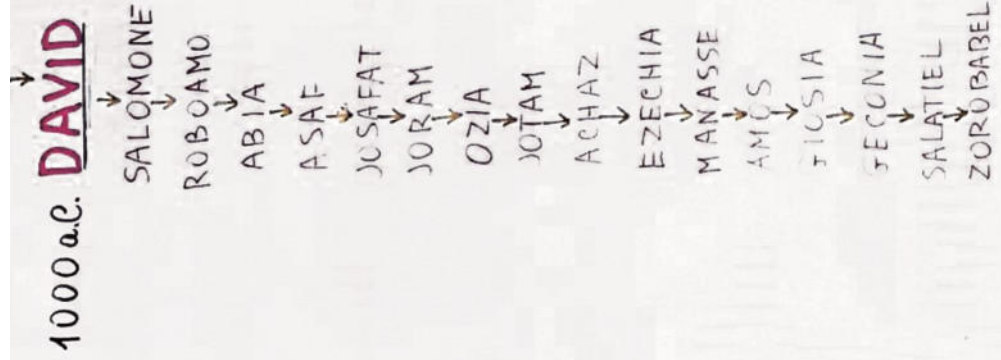 1000 a.C. DAVID
SALOMONE
ROBOAMO
ABIA
ASAF
JOSAFAT
JORAM
OZIA
JOTAM
ACHAZ
EZECHIA
MANASSE
AMOS
GIOSIA
JECONIA
SALATIEL
ZOROBABEL